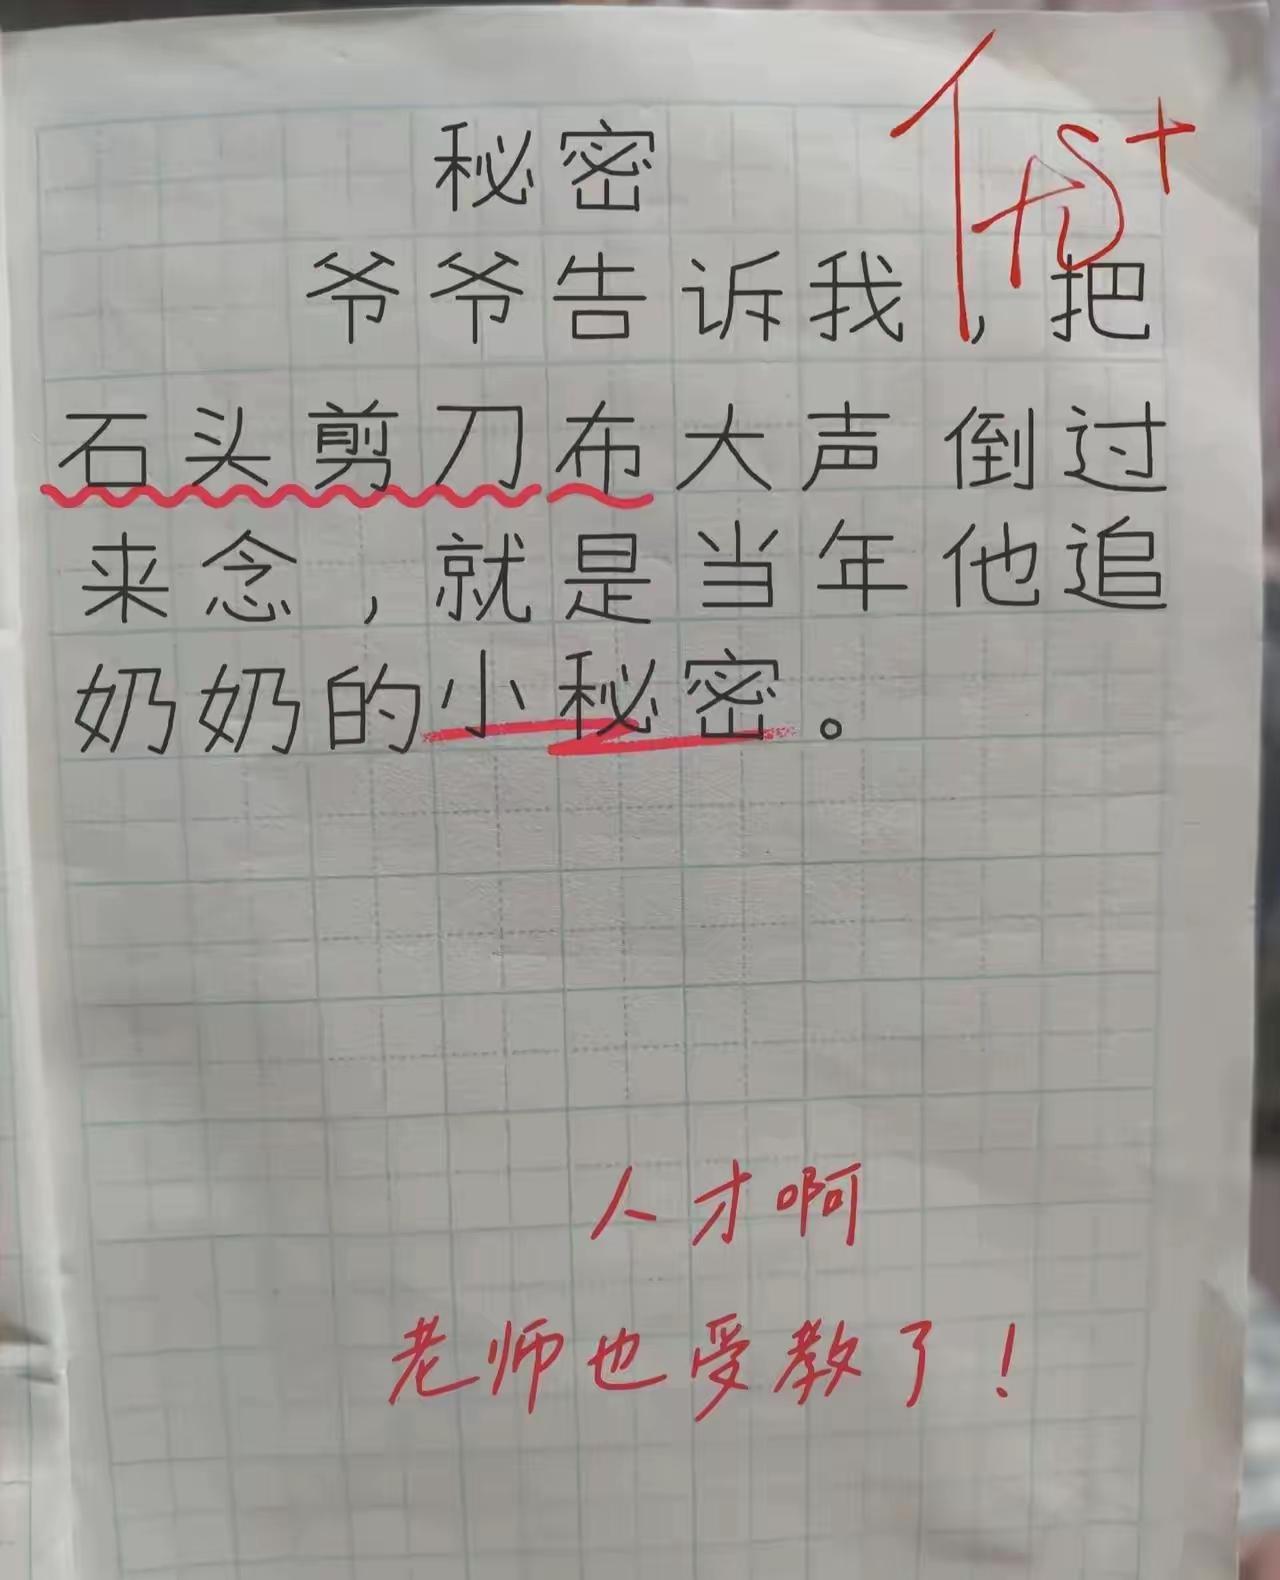 秘密
优+
爷爷告诉我，把
石头剪刀布大声倒过
来念，就是当年他追
奶奶的小秘密。
人才啊
老师也受教了！